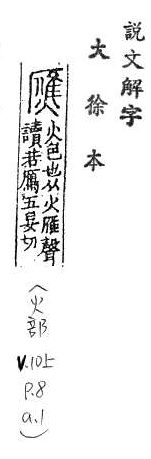 說文解字
大徐本
火色也从火雁聲
讀若鴈五晏切
(火部
V.10上
P.8
a.1)